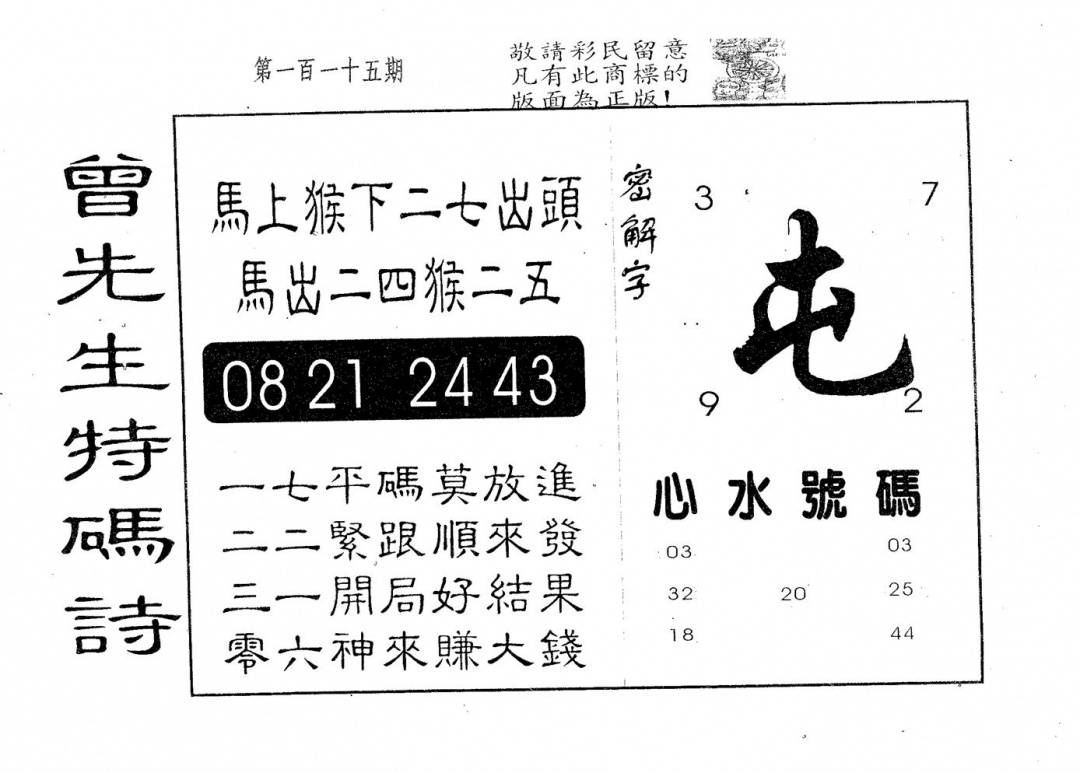 第一百一十五期
敬請彩民留意
凡有此商標的
版面為正版!
曾先生特碼詩
馬上猴下二七出頭
馬出二四猴二五
08 21 24 43
一七平碼莫放進
二二緊跟順來發
三一開局好結果
零六神來賺大錢
密解字
3 7
屯
9 2
心水號碼
03 03
32 20 25
18 44